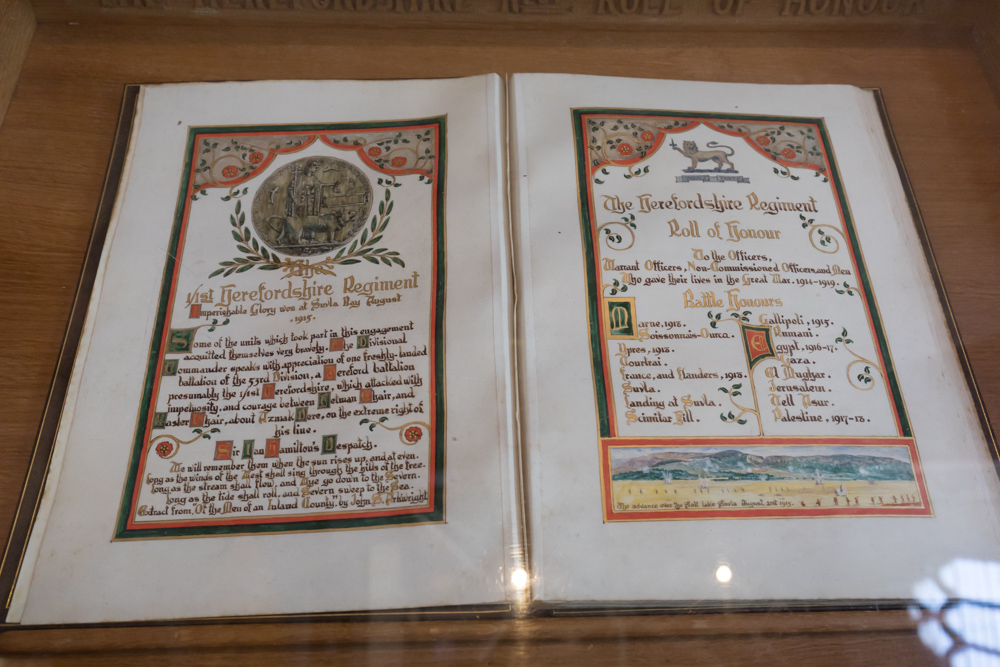 THE HEREFORDSHIRE REGT. ROLL OF HONOUR
The
1/1st Herefordshire Regiment
Imperishable Glory won at Suvla Bay August
. 1915.
Some of the units which took part in this engagement
acquitted themselves very bravely. The Divisional
Commander speaks with appreciation of one freshly-landed
battalion of the 53rd Division, a Hereford battalion
presumably the 1/1st Herefordshire, which attacked with
impetuosity, and courage between Hetman Chair, and
Kaslar Chair, about Azmak Dere, on the extreme right of
his line.
Sir Ian Hamilton's Despatch.
We will remember them when the sun rises up, and at even.
long as the winds of the West shall sing through the hills of the free-
long as the stream shall flow, and Wye go down to the Severn.
long as the tide shall roll, and Severn sweep to the Sea.
Extract from, "Of the Men of an Inland County," by John S. Arkwright
The Herefordshire Regiment
Roll of Honour
To the Officers,
Warrant Officers, Non-Commissioned Officers, and Men
Who gave their lives in the Great War. 1914-1919.
Battle Honours
Marne, 1918.
Soissonnais-Ourcq.
Ypres, 1918.
Courtrai.
France, and Flanders, 1918.
Suvla.
Landing at Suvla.
Scimitar Hill.
Gallipoli, 1915.
Rumani.
Egypt, 1916-17.
Gaza.
El Mughar.
Jerusalem.
Tell Asur.
Palestine. 1917-18.
The advance over the Salt Lake Suvla August 21st 1915.